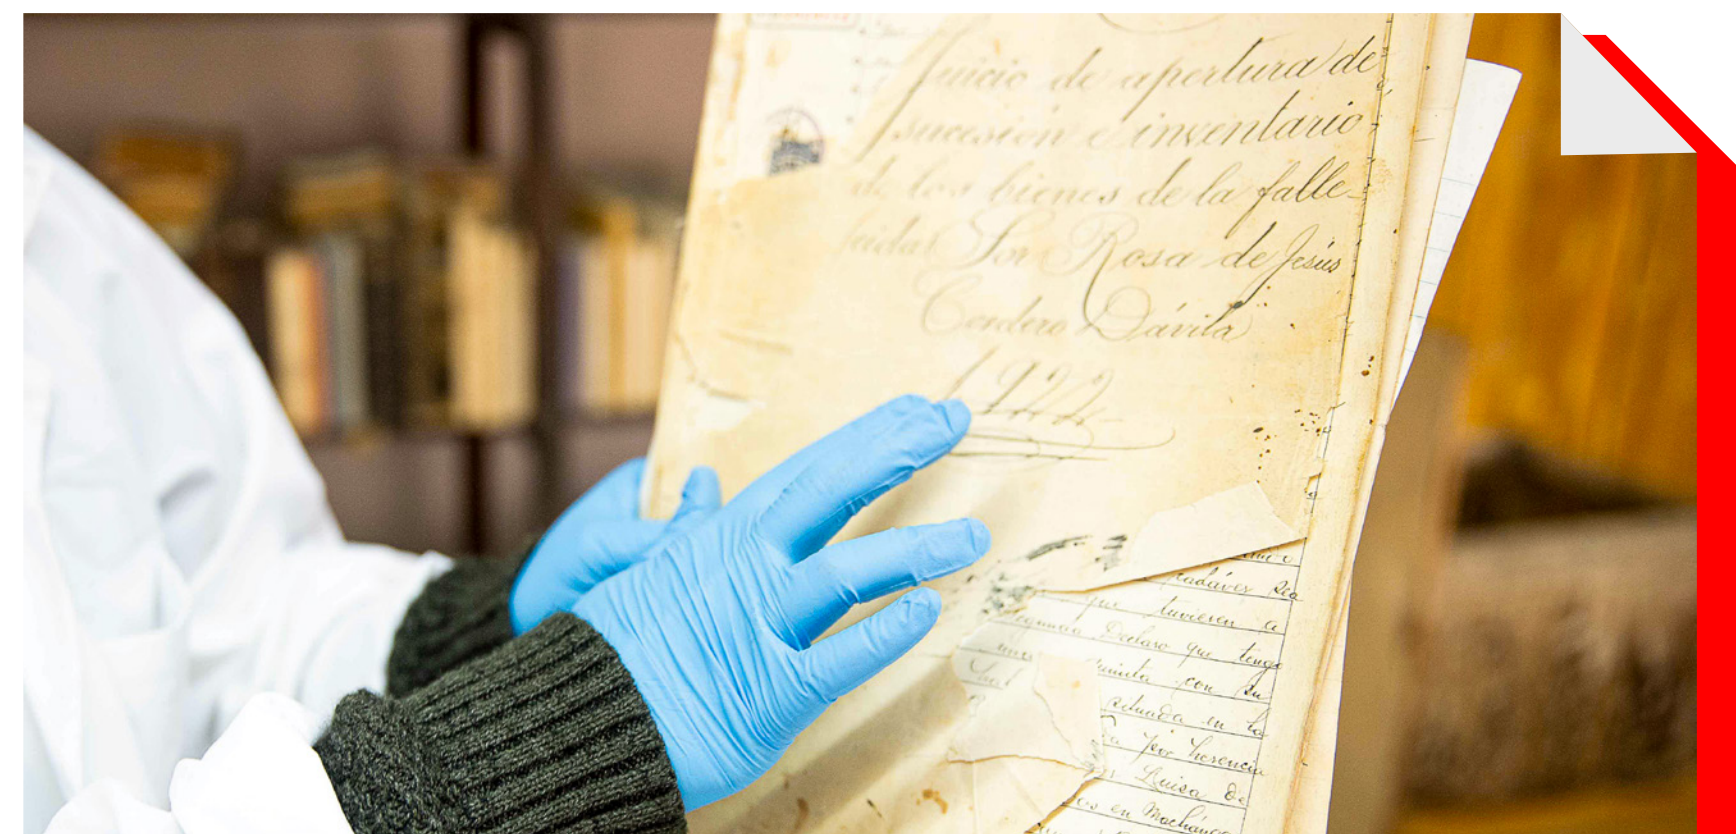 Juicio de apertura de
sucesión e inventario
de los bienes de la falle-
cida Sor Rosa de Jesús
Cordero Dávila
1922
cadáver sea
que tuviesen a
Segunda Declaro que tengo
con su
situada en la
por herencia
Luisa de
os en Machángara